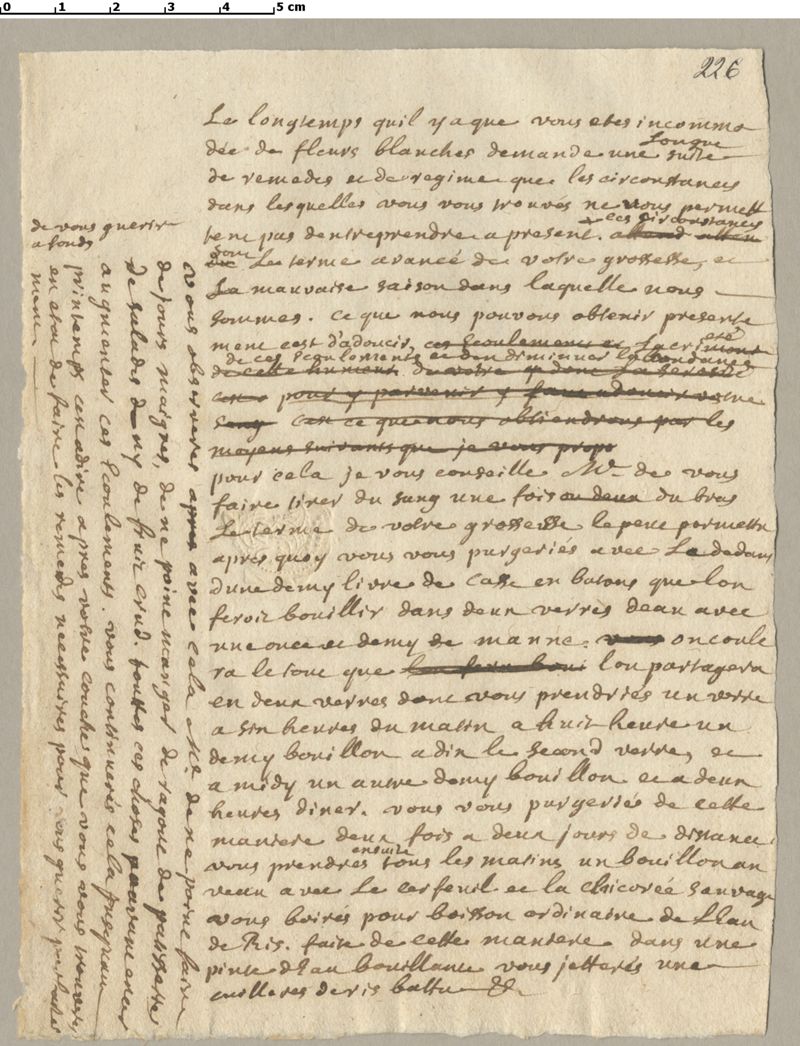 0 1 2 3 4 5 cm
226
Le longtemps quil y a que vous etes incommo
dée de fleurs blanches demande une longue suite
de remedes et de regime que les circonstances
dans lesquelles vous vous trouvés ne vous permett
de vous guerir
a fonds
tent pas dentreprendre a present. ces circonstances
sont Le terme avancé de votre grossesse, et
La mauvaise saison dans laquelle nous
sommes. ce que nous pouvons obtenir presente
ment cest d'adoucir, ces Ecoulements et Lacrimonie
de ces Ecoulements et den diminuer labondance
de cette humeur
pour y parvenir y faut adoucir votre
sang cest ce que nous obtiendrons par les
moyens suivants que je vous prop
pour cela je vous conseille Me de vous
faire tirer du sang une fois ou deux du bras
Le terme de votre grossesse le peut permettre
apres quoy vous vous purgeriés avec Le dedans
dune demy livre de Casse en batons que lon
feroit bouillir dans deux verres deau avec
une once et demy de manne. vous on coule
ra le tout que lon partagera
en deux verres dont vous prendriés un verre
a six heures du matin a huit heure un
demy bouillon a dix le second verre, et
a midy un autre demy bouillon et a deux
heures diner. vous vous purgeriés de cette
maniere deux fois a deux jours de distance.
vous prendres ensuite tous les matins un bouillon au
veau avec Le cerfeuil et la chicorée sauvage
vous boirés pour boisson ordinaire de L'Eau
de Ris. faite de cette maniere dans une
pinte dEau bouillante vous jetterés une
cuilleres de ris battu &c
vous observeres apres avec cela Me de ne point faire
de jours maigres, de ne point manger de ragout de patisseries
de salades ny de fruit crud. touttes ces choses pouvant encor
augmenter ces Ecoulements. vous continuerés cela jusquau
printemps cest a dire apres votre couche que vous vous trouverés
en etat de faire les remedes necessaires pour vous guerir parfaite
ment